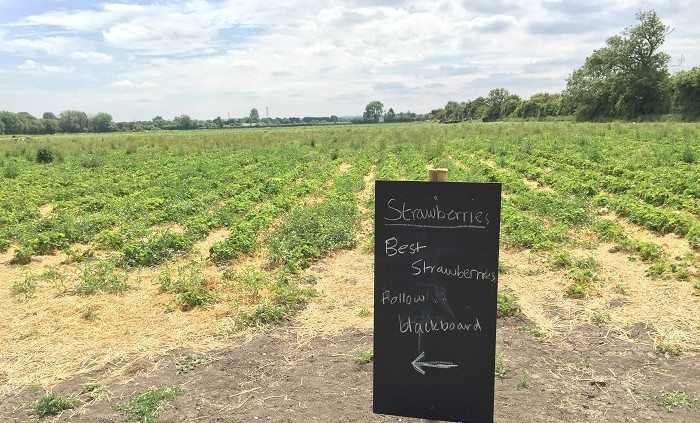 Strawberries
Best
Strawberries
Follow
blackboard